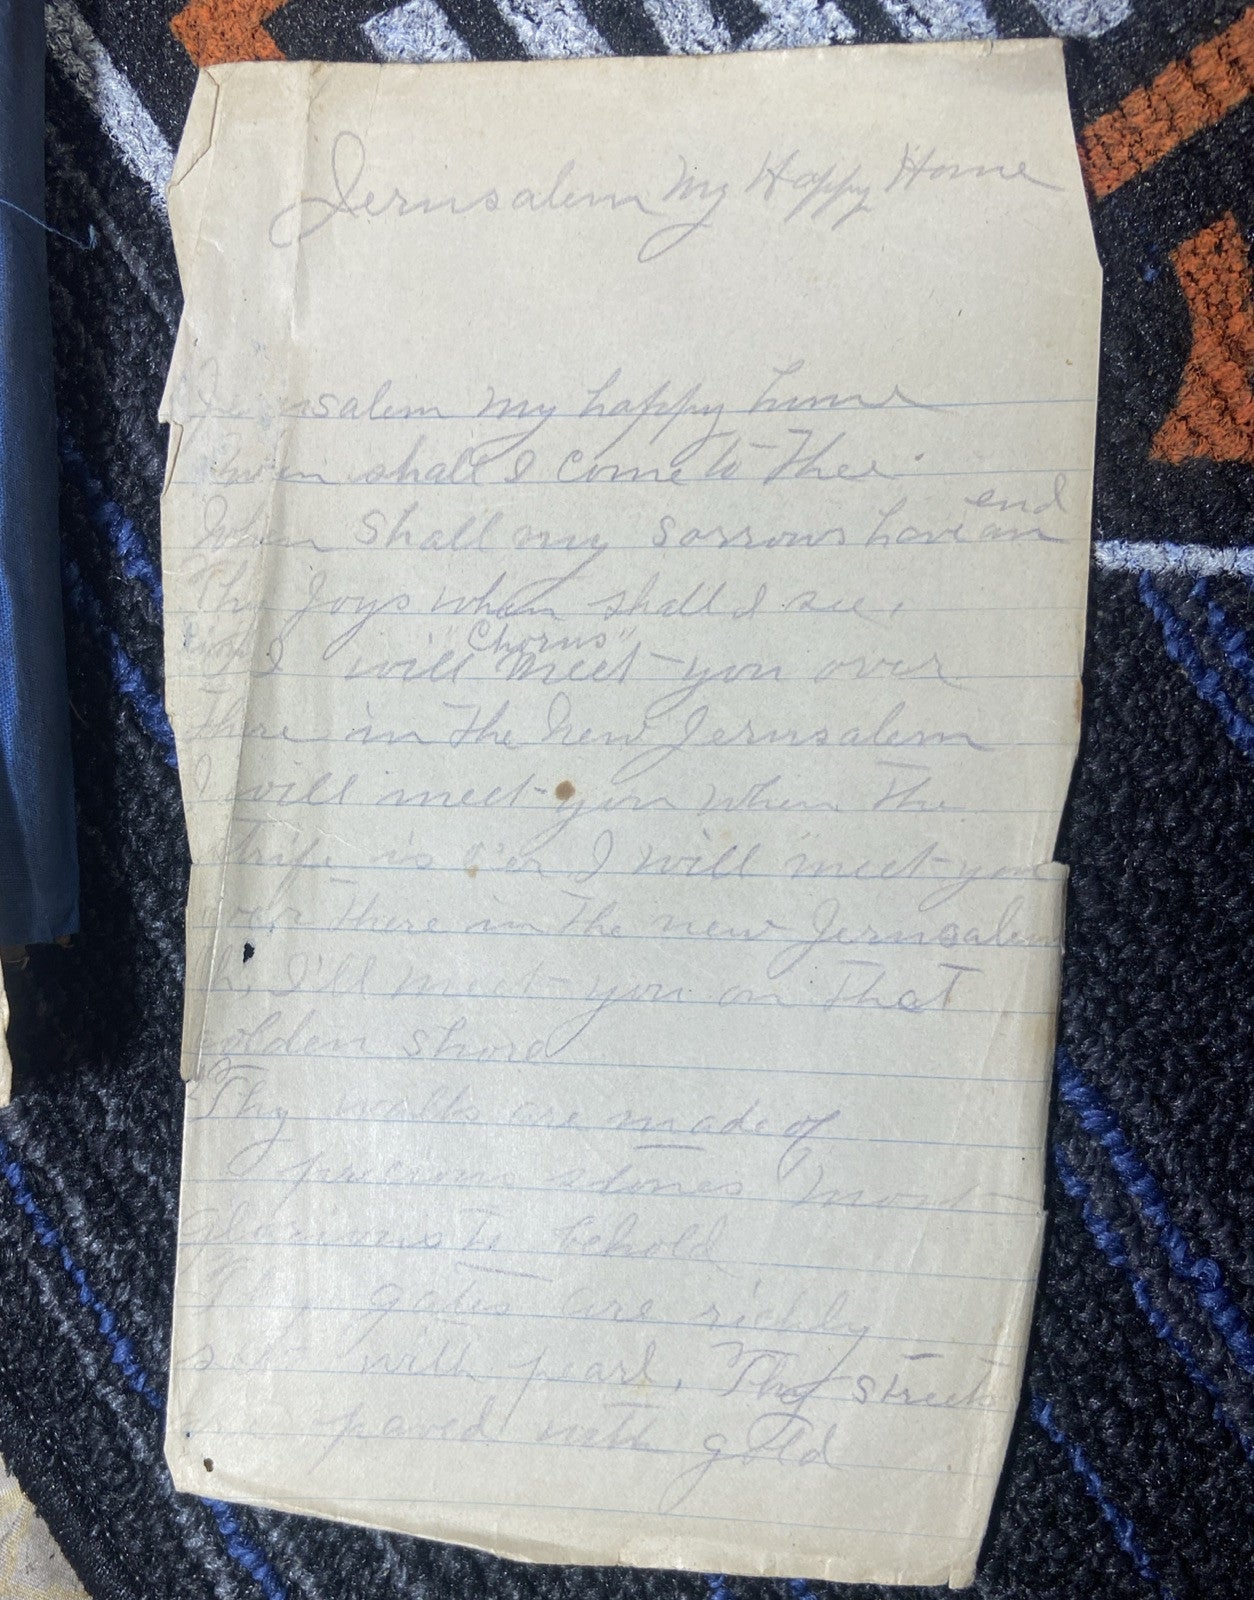 Jerusalem My Happy Home
Jerusalem my happy home
When shall I come to Thee.
When shall my sorrows have an end
Thy Joys when shall I see.
"Chorus"
I will meet you over
There in The New Jerusalem
I will meet you when The
strife is o'er I will meet you
over There in The new Jerusalem
Oh, I'll meet you on That
golden shore
Thy walls are made of
precious stones most
glorious To behold
Thy gates are richly
set with pearl, Thy streets
are paved with gold